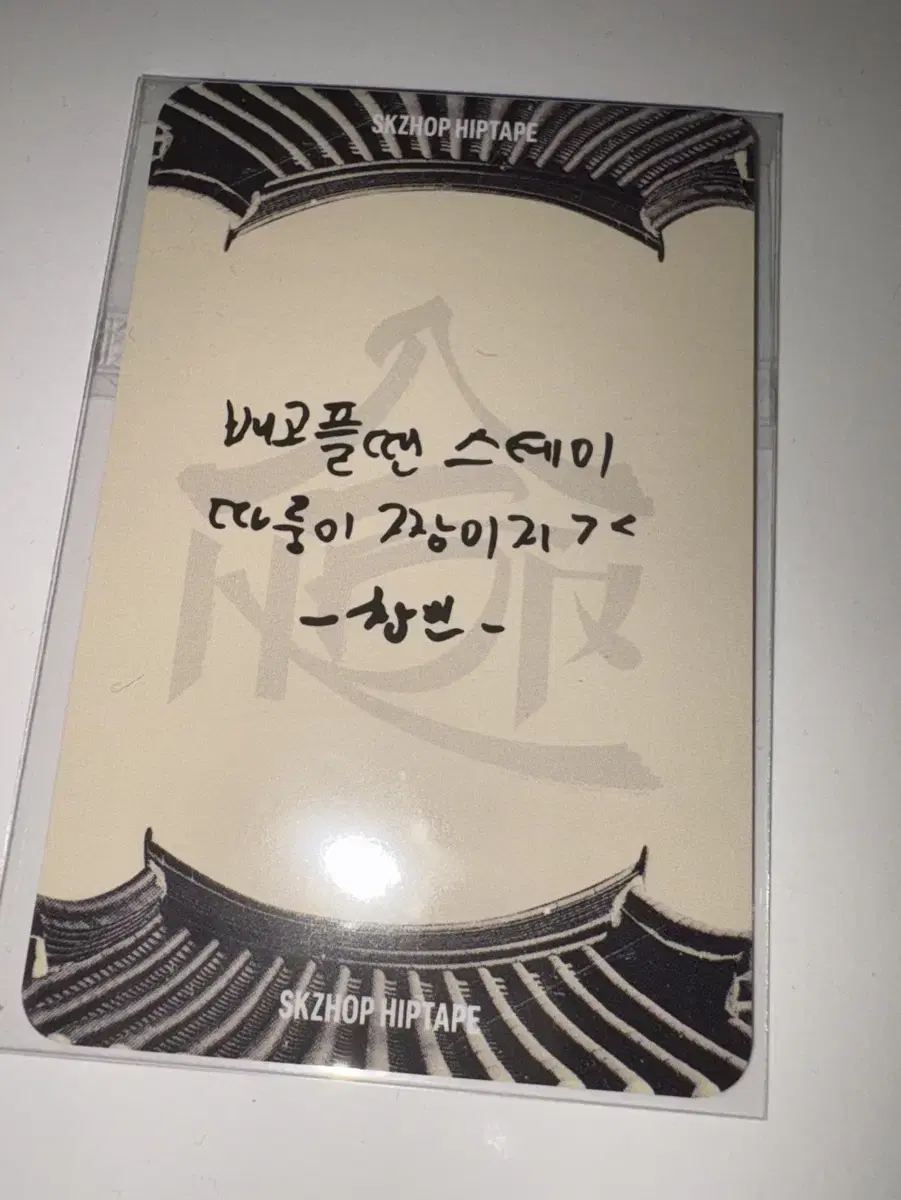 SKZHOP HIPTAPE
배고플땐 스테이
따룽이 짱이지 ㅈㅈ
-창빈-
SKZHOP HIPTAPE